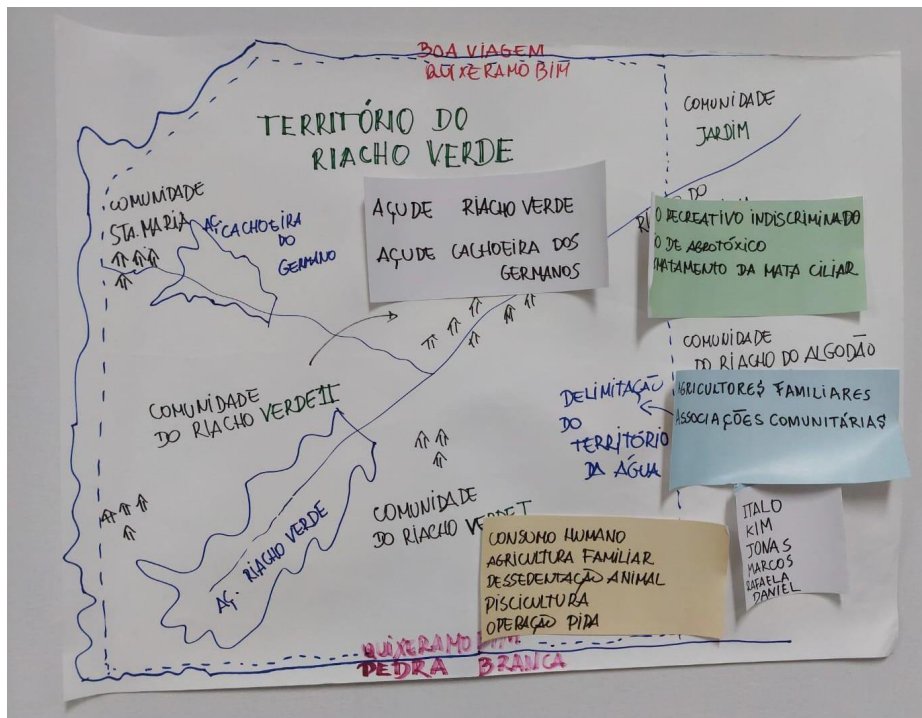 BOA VIAGEM
QUIXERAMOBIM
TERRITÓRIO DO
RIACHO VERDE
COMUNIDADE
JARDIM
COMUNIDADE
STA. MARIA
AÇ. CACHOEIRA
DO
GERMANO
AÇUDE RIACHO VERDE
AÇUDE CACHOEIRA DOS
GERMANOS
DO
O RECREATIVO INDISCRIMINADO
O DE AGROTÓXICO
MATAMENTO DA MATA CILIAR
COMUNIDADE
DO RIACHO DO ALGODÃO
COMUNIDADE
DO RIACHO VERDE II
DELIMITAÇÃO
DO
TERRITÓRIO
DA ÁGUA
AGRICULTORES FAMILIARES
ASSOCIAÇÕES COMUNITÁRIAS
AÇ. RIACHO VERDE
COMUNIDADE
DO RIACHO VERDE I
CONSUMO HUMANO
AGRICULTURA FAMILIAR
DESSEDENTAÇÃO ANIMAL
PISCICULTURA
OPERAÇÃO PIPA
ITALO
KIM
JONAS
MARCOS
RAFAELA
DANIEL
QUIXERAMOBIM
PEDRA BRANCA